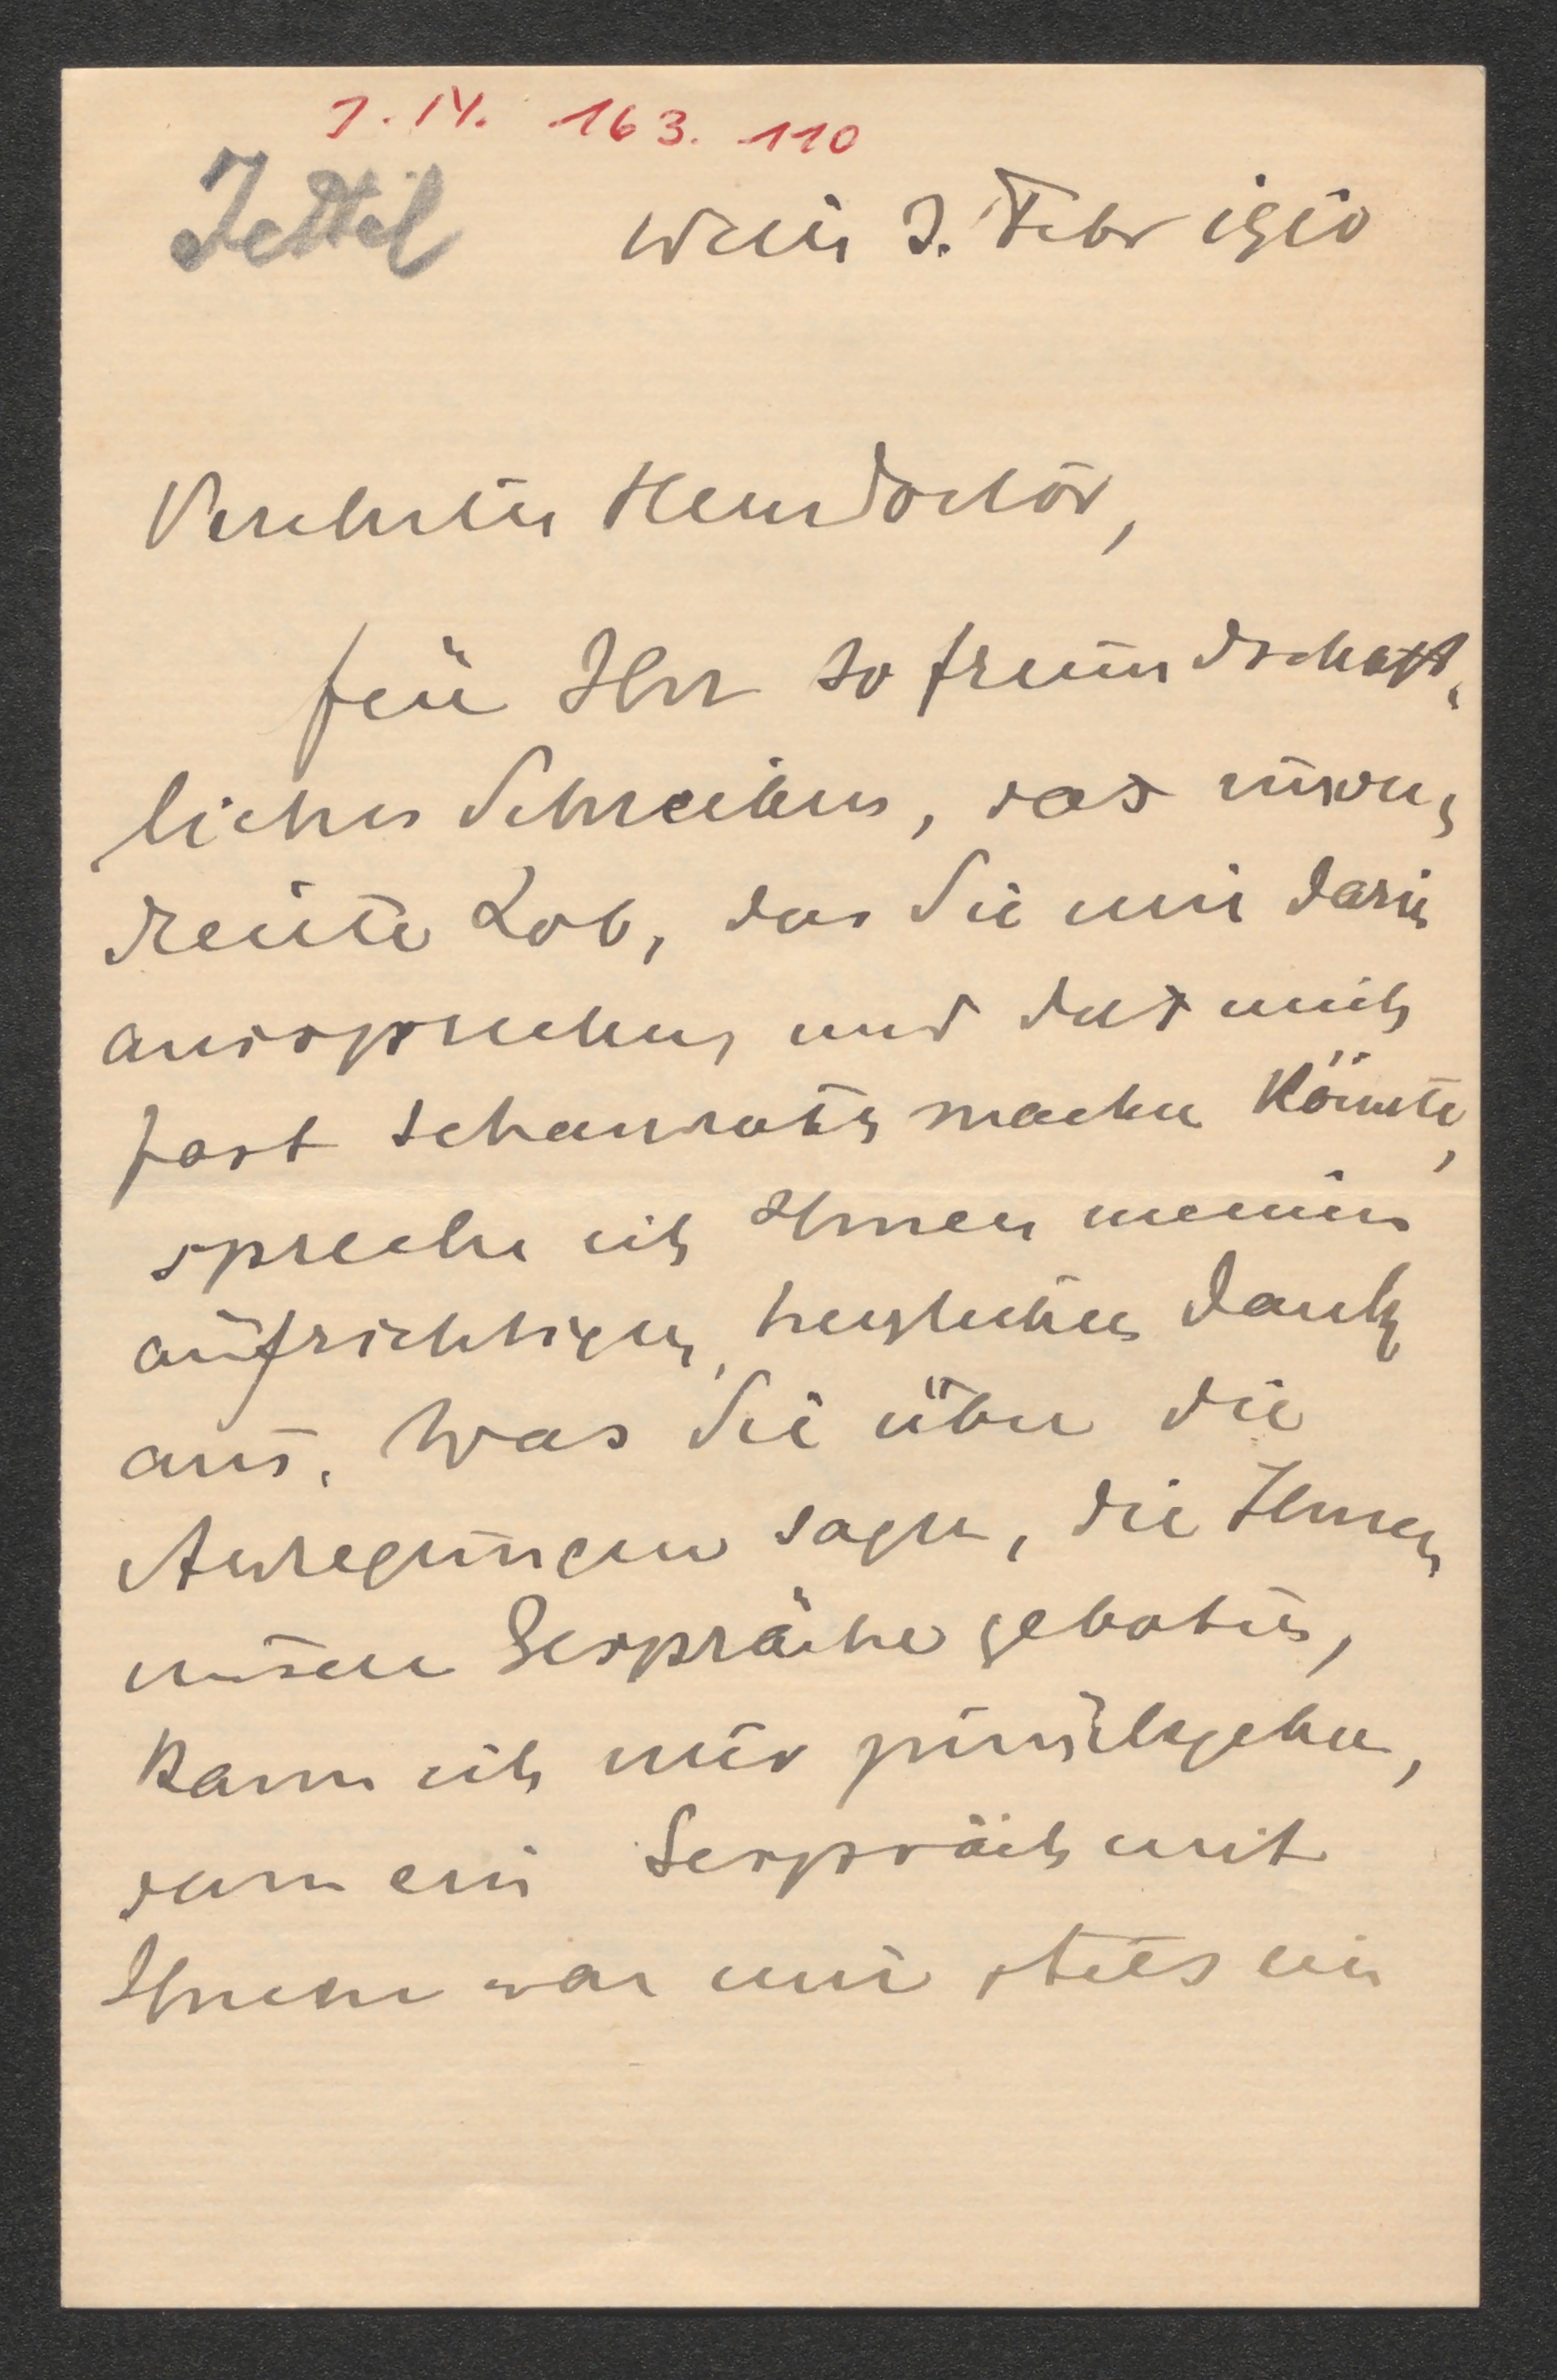 J.N. 163.110
Jettel Wien 3. Febr 1910
Verehrter Herr Doctor,
für Ihr so freundschaft-
liches Schreiben, das
Lob, das Sie mir darin
aussprechen und das mich
fast schamrot machen könnte,
spreche ich Ihnen meinen
aufrichtigen, herzlichen Dank
aus. Was Sie über die
Anregungen sagen, die Ihnen
unsere Gespräche geboten,
kann ich nur zurückgeben,
denn ein Gespräch mit
Ihnen war mir stets ein